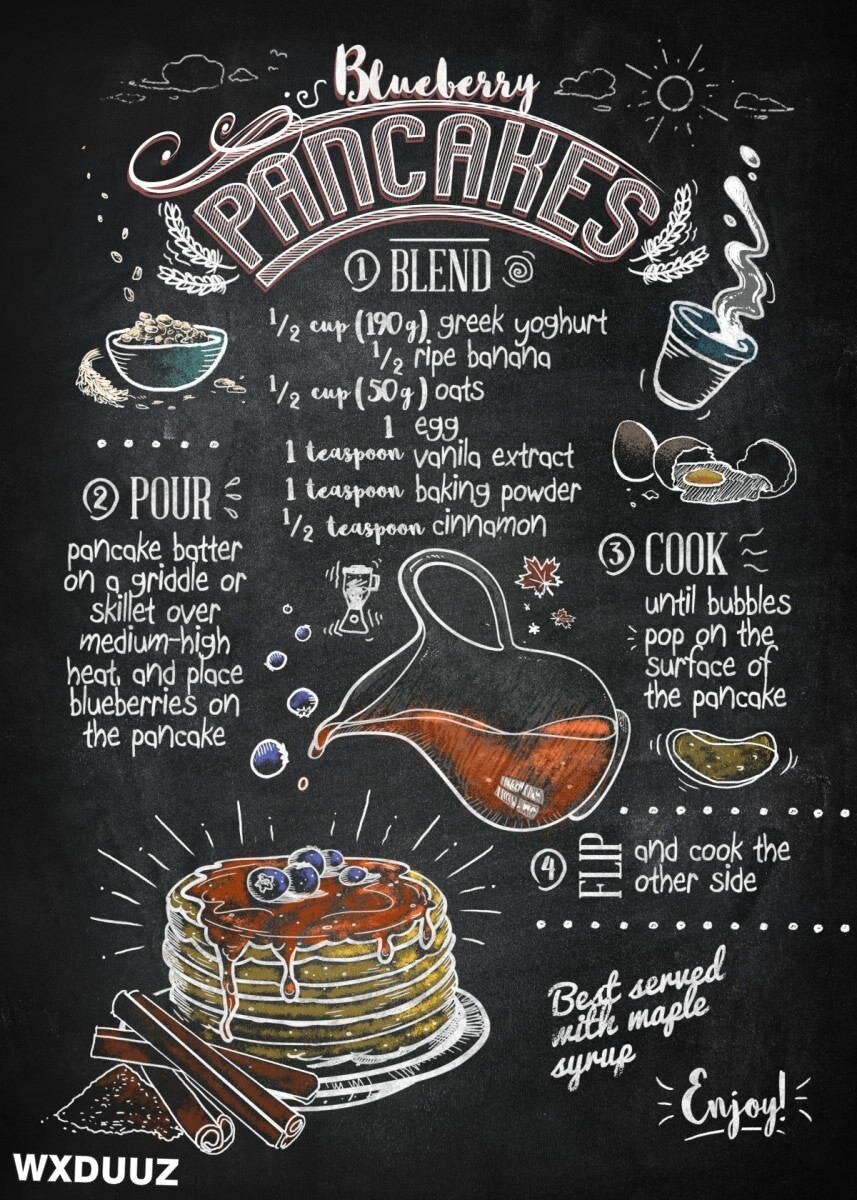 Blueberry
PANCAKES
1 BLEND
1/2 cup (190g) greek yoghurt
1/2 ripe banana
1/2 cup (50g) oats
1 egg
1 teaspoon vanila extract
1 teaspoon baking powder
1/2 teaspoon cinnamon
2 POUR
pancake batter
on a griddle or
skillet over
medium-high
heat, and place
blueberries on
the pancake
3 COOK
until bubbles
pop on the
surface of
the pancake
4 FLIP and cook the
other side
Best served
with maple
syrup
Enjoy!
WXDUUZ